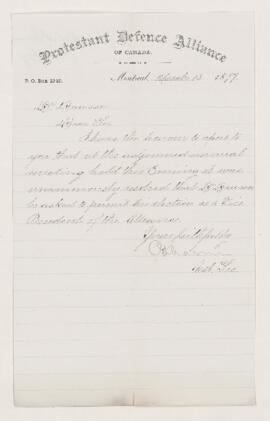 Protestant Defence Alliance
OF CANADA.
P. O. BOX
Montreal, March 13 1877
Dr Dawson
Dear Sir
I have the honour to report to
you that at the adjourned annual
meeting held this Evening it was
unanimously resolved that Dr Dawson
be asked to permit his election as a Vice
President of the Alliance.
Yours faithfully
Sec